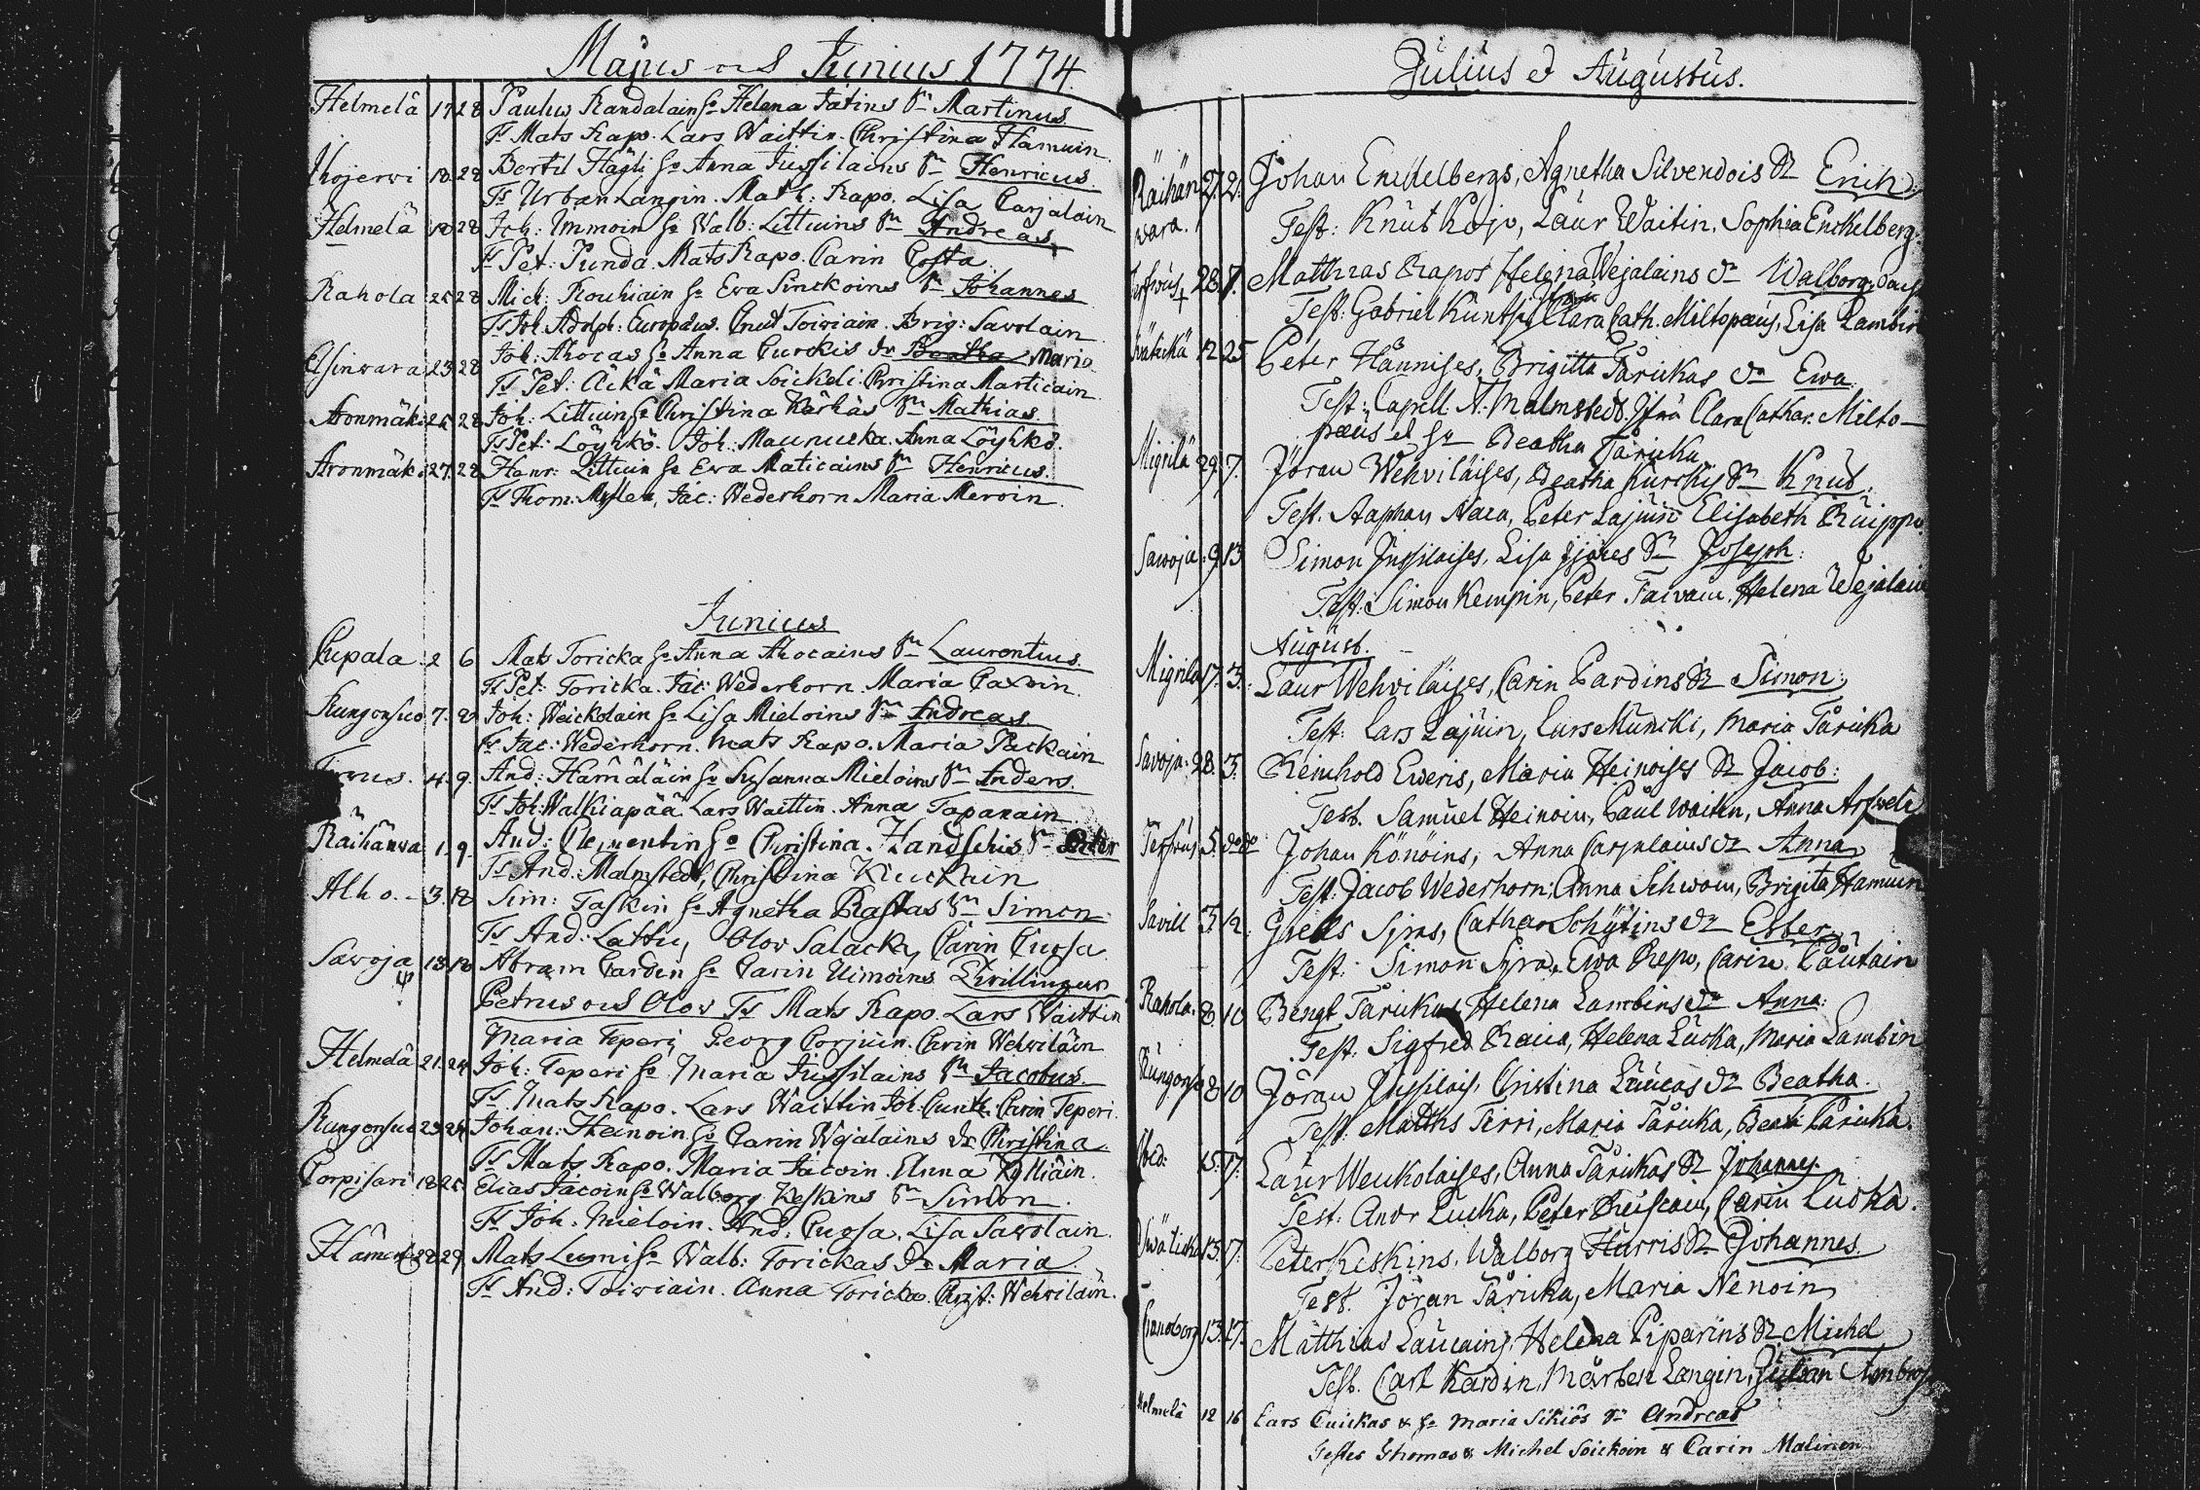 Majus och Junius 1774.
Helmelä 17 28 Paulus Randalain H: Helena Tatins Sn Martinus.
Ts Mats Rapo. Lars Waittin. Christina Hamuin.
18. 28 Bertil Hägli H: Anna Jussilains Sn Henricus.
Ts Urban Langin. Math: Rapo. Lisa Carjalain
Helmelä 18 28 Joh: Immoin H: Walb: Littuins Sn Andreas.
Ts Pet: Punda. Mats Rapo. Carin Costa.
Rahola 25 28 Mich: Rouhiain H: Eva Sinckoins Sn Johannes
Ts Joh: Adolph: Europæus. Cnut Toiviain. Brig: Savolain
23 28 Joh: Ahocas H: Anna Curckis dr Maria
Ts Pet: Äckä Maria Soickeli Christina Marticain.
Aronmäki 25 28 Joh: Littuin H: Christina Kärhäs Sn Mathias.
Ts Pet: Löyhkö. Joh: Maunucka. Anna Löyhkö.
Aronmäk. 27. 28 Henr: Littuin H: Eva Maticains Sn Henricus.
Ts Thom: Jac: Wederhorn Maria Meroin.
Junius
Cupala 2 6 Mats Toricka H: Anna Ahocains Sn Laurentius.
Ts Pet: Toricka. Jac: Wederhorn. Maria
Rungonsuo 7. Joh: Weickolain H: Lisa Mieloins Sn Andreas
Ts Jac: Wederhorn. Mats Rapo. Maria Packain
4. 9. And: Hämäläin H: Susanna Mieloins Sn Anders.
Ts Joh: Walkiapää. Lars Waittin. Anna Tapanain
1. 9. And: Clementin H: Christina Sn Peter
Ts And: Malmstedt, Christina
Alho. 3. Sim: Taskin H: Agnetha Rastas Sn Simon
Ts And: Lattu, Olov Salack, Carin Cuosa
Sawoja 18 Abram Carden H: Carin Uimoins Tvillingar
Petrus och Olov Ts Mats Rapo. Lars Waittin
Maria Teperi Georg Corjuin. Carin Wehviläin
Helmelä 21. 24 Joh: Teperi H: Maria Jussilains Sn Jacobus.
Ts Mats Rapo. Lars Waittin Joh: Carin Teperi.
Rungonsuo 23 24 Johan: Heinoin H: Carin Wejalains dr Christina
Ts Mats Rapo. Maria Jacoin. Anna
Corpisari 18 25 Elias Jacoin H: Walborg Keskins Sn Simon.
Ts Joh: Mieloin. And: Cuosa. Lisa Savolain.
28 29 Mats Lumi H: Walb: Torickas dr Maria
Ts And: Toiviain. Anna Toricka. Christ: Wehviläin.
Julius et Augustus.
Räihän 27. 2. Johan Enckelbergs, Agnetha Silvendois Sn Erich
wara. Test: Knut Laur Waitin. Sophia Enckelberg.
28. 7. Matthias Rapos Helena Wejalains dr Walborg
Test: Gabriel Kuntsi Clara Cath. Miltopæus, Lisa Lambin
12 25 Peter Hännises, Brigitta Tårickas dr Ewa
Test: Capell: A: Malmstedt. Clara Cathar. Milto-
pæus et Beatha Tåricka
Migrilä 29 7. Jöran Wehviläises, Beatha Kurckis Sn Knut.
Test. Staphan Peter Lajuin Elisabeth
Sawoja. 9. 13 Simon Jussilaises, Lisa Sn Joseph:
Test: Simon Kempin, Peter Helena Wejalain
August.
Migrilä 17. 3. Laur Wehviläises, Carin Pardins Sn Simon.
Test: Lars Lajuin, Maria Tåricka
Savoja. 28. 3. Reinhold Eweris, Maria Heinoises Sn Jacob:
Test. Samuel Heinoin, Paul Waitin, Anna
Terfvus 5. do do Johan Könöins, Anna Carjalains dr Anna
Test: Jacob Wederhorn, Anna Brigita Hamuin
Savill 5. 12. Syras, Cathar dr Ester
Test: Simon Syra, Ewa Repo, Carin
Rahola. 8. 10 Bengt Tårickas, Helena Lambins dr Anna.
Test: Sigfred Helena Lucka, Maria Lambin
8 10 Jöran Jussilais, Christina Luucas dr Beatha.
Test: Matths Tirri, Maria Tåricka, Beata Tåricka.
Ibid: 15. 17. Laur Weukolaises, Anna Tårickas Sn Johannes.
Test: Andr Lucka, Peter Carin Lucka.
13. 17. Peter Keskins, Walborg Hurris Sn Johannes.
Test. Jöran Tåricka, Maria Nenoin
13. 17. Matthias Laucains, Helena Piparins Sn Michel
Test. Carl Kardin, Mårten Langin,
Helmelä 12 16 Lars Cuickas & H: Maria Sikiös Sn Andreas
Testes Thomas & Michel Soickoin & Carin Malinen